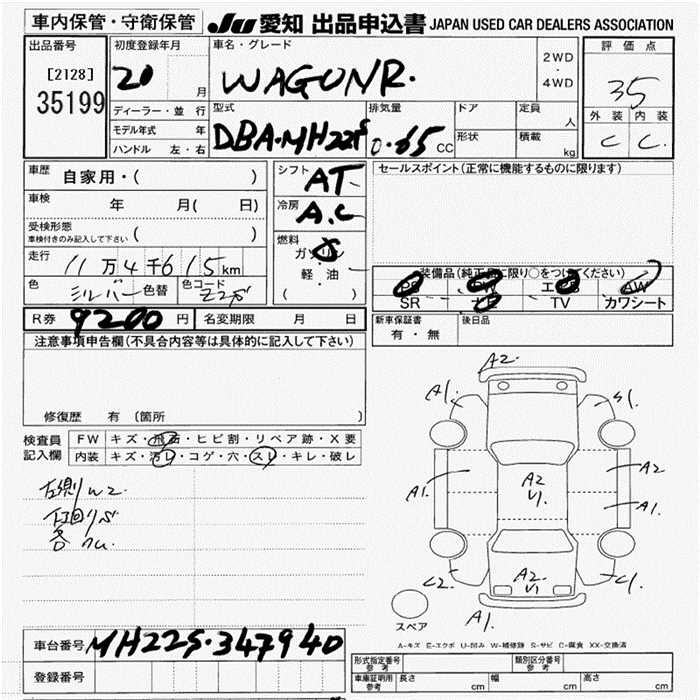 車内保管・守衛保管 JU 愛知 出品申込書 JAPAN USED CAR DEALERS ASSOCIATION
出品番号 初度登録年月 車名・グレード 2WD・4WD 評価点
[2128] 20 月 WAGONR. 35
35199 ディーラー・並行 型式 排気量 ドア 定員 人 外装 内装
モデル年式 年 DBA・MH22S 0.65 CC 形状 積載 kg C C.
ハンドル 左・右
車歴 自家用・( ) シフト AT セールスポイント(正常に機能するものに限ります)
車検 年 月( 日) 冷房 A.C
受検形態 ( )
車検付きのみ記入して下さい 燃料 ガソリン
走行 11万4千615km 軽・油
色 シルバー 色替 色コード Z2S ( ) 装備品(純正品に限り○をつけてください)
PS PW エアB AW
SR ナビ TV カワシート
R券 9200 円 名変期限 月 日 新車保証書 有・無 後日品
注意事項申告欄(不具合内容等は具体的に記入して下さい)
修復歴 有 (箇所 )
検査員記入欄 FW キズ・飛石・ヒビ割・リペア跡・X要
内装 キズ・汚レ・コゲ・穴・スレ・キレ・破レ
左側W2
下回りサビ
A2.
A1. S1.
A1. A2 U1. A2
A1.
C2. A2. U1 C1.
A1.
スペア
A-キズ E-エクボ U-凹み W-補修跡 S-サビ C-腐食 XX-交換済
車台番号 MH22S・347940
登録番号
形式指定番号 参考 類別区分番号 参考
車庫証明用 参考 長さ cm 幅 cm 高さ cm